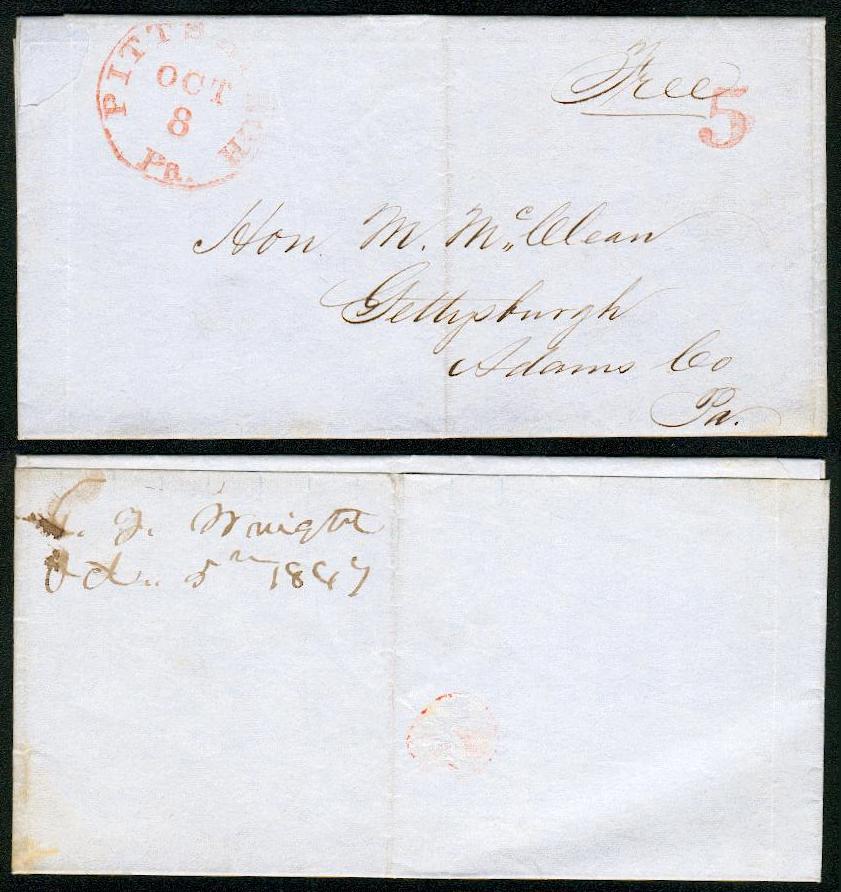 PITTSBURGH
OCT
8
Pa.
Free
5
Hon. M. Mc,,Clean
Gettysburgh
Adams Co
Pa.
J. Wright
Oct.. 5th 1847